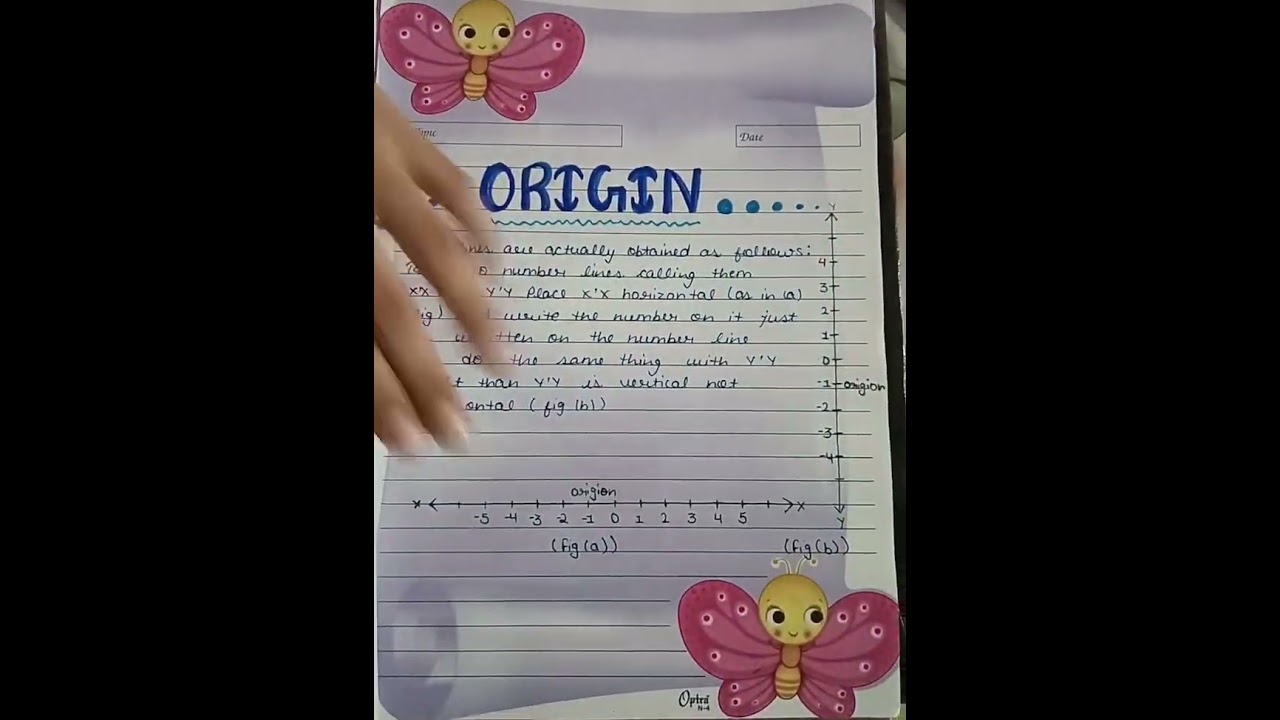 Date
ORIGIN.....
are actually obtained as follows:
number lines calling them
Y'Y Place X'X horizontal (as in (a)
write the number on it just
on the number line
do the same thing with Y'Y
than Y'Y is vertical not
(fig (b))
Y
4
3
2
1
0
-1 origion
-2
-3
-4
Y
origion
X X
-5 -4 -3 -2 -1 0 1 2 3 4 5
(fig (a)) (fig (b))
Optra
N-4